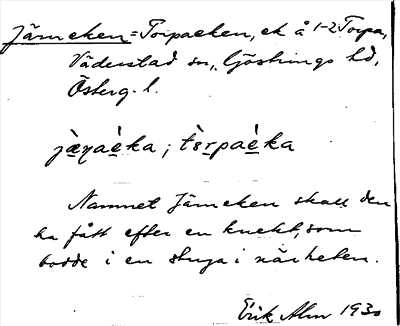 Järneken = Torpaeken, ek å 1-2 Torpa,
Väderstad sn, Göstrings hd,
Österg. l.
jæ̀ṇaè̱ka; tɜ̀rpaè̱ka
Namnet Järneken skall den
ha fått efter en knekt, som
bodde i en stuga i närheten.
Erik Alm 1930